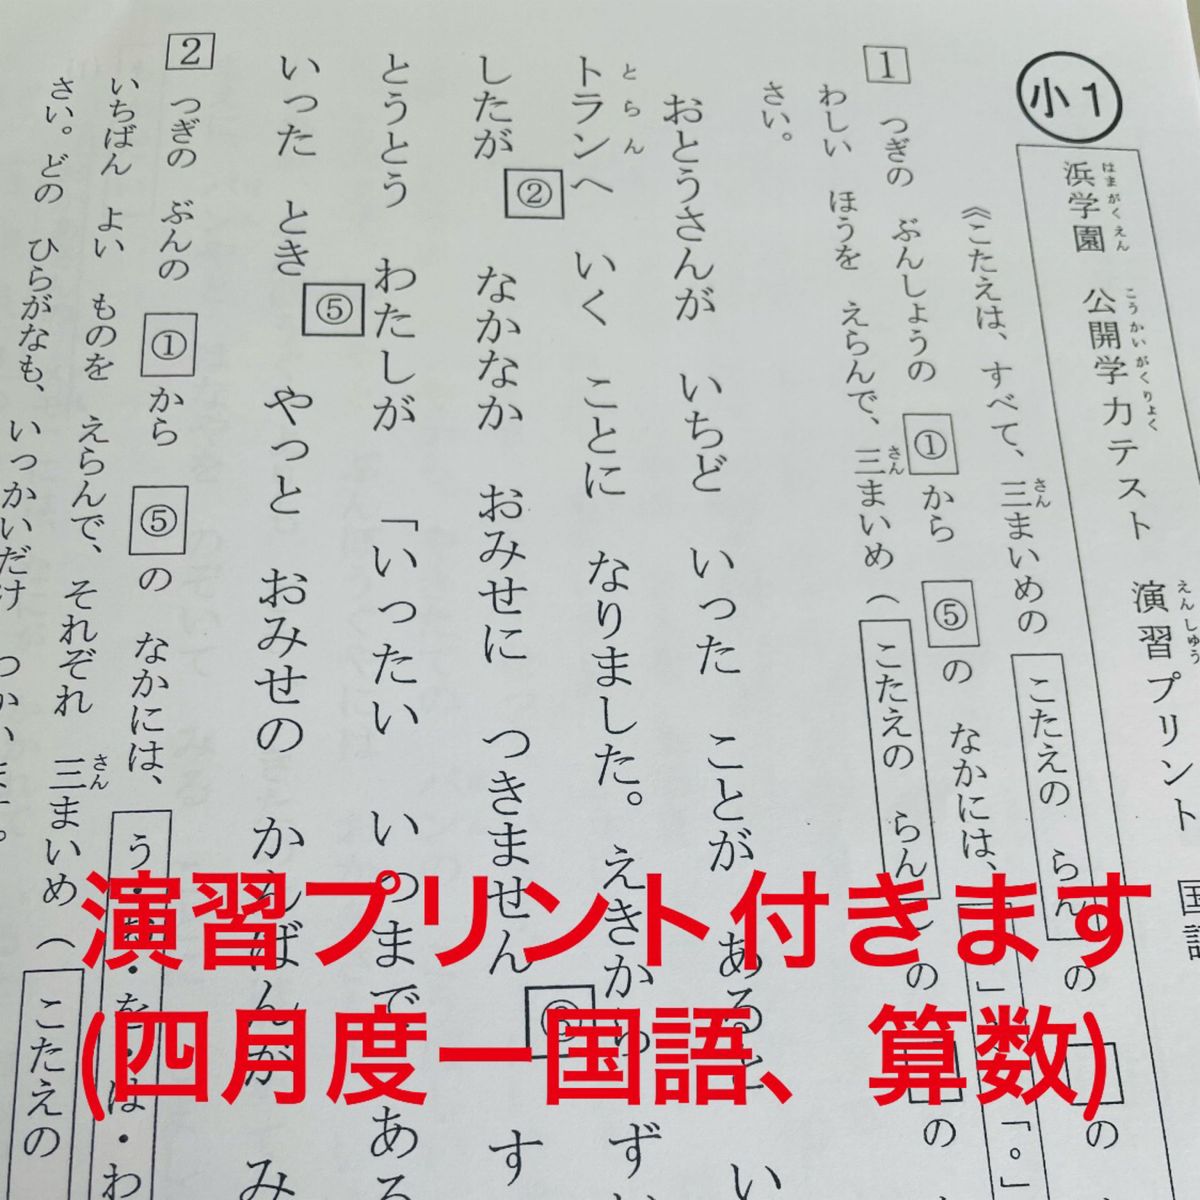 小1
浜学園 公開学力テスト 演習プリント 国語
はまがくえん こうかいがくりょく えんしゅう
《こたえは、すべて、三まいめの こたえの らん の の
さん
1 つぎの ぶんしょうの ①から ⑤の なかには、「、」「。」
わしい ほうを えらんで、三まいめ(こたえの らん の の
さん
さい。
おとうさんが いちど いった ことが ある い
トランへ いく ことに なりました。えきから ずい
とらん
したが ② なかなか おみせに つきません す
とうとう わたしが 「いったい いつまで ある
いった とき ⑤ やっと おみせの かんばんが み
2 つぎの ぶんの ①から ⑤の なかには、う・お・を・は・わ
いちばん よい ものを えらんで、それぞれ 三まいめ(こたえの
さん
さい。どの ひらがなも、いっかいだけ つかいます。
演習プリント付きます
(四月度ー国語、算数)